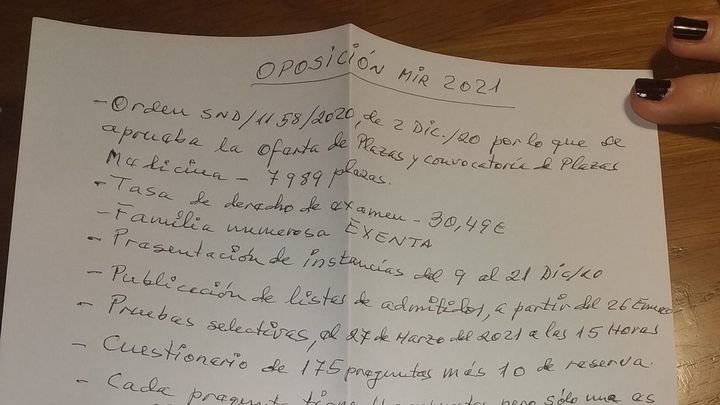 OPOSICIÓN MIR 2021
- Orden SND/1158/2020, de 2 Dic./20 por lo que se
aprueba la oferta de Plazas y convocatoria de Plazas
Medicina - 7989 plazas.
- Tasa de derecho de examen - 30,49€
- Familia numerosa EXENTA
- Presentación de instancias del 9 al 21 Dic/20
- Publicación de listas de admitidos, a partir del 26 Enero
- Pruebas selectivas, el 27 de Marzo del 2021 a las 15 Horas
- Cuestionario de 175 preguntas más 10 de reserva.
- Cada pregunta tiene pero sólo una es